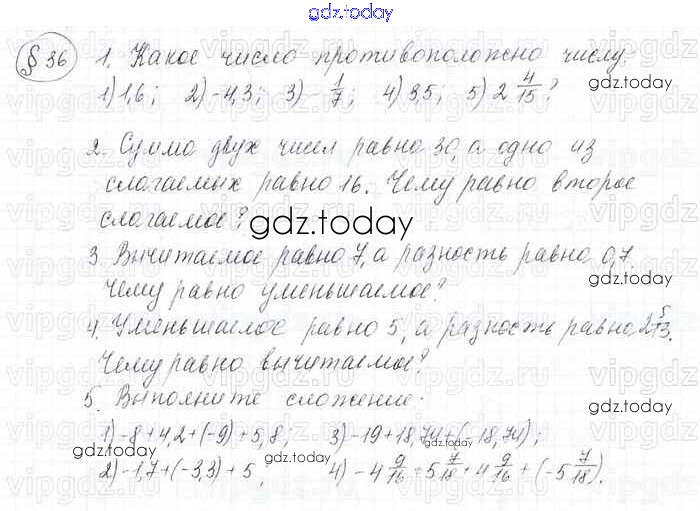 gdz.today
§ 36 1. Какое число противоположно числу:
1) 1,6; 2) -4,3; 3) -1/7; 4) 3,5; 5) 2 4/15?
gdz.today
2. Сумма двух чисел равна 30, а одно из
слагаемых равно 16. Чему равно второе
слагаемое?
gdz.today
3. Вычитаемое равно 7, а разность равна 0,7.
Чему равно уменьшаемое?
gdz.today
4. Уменьшаемое равно 5, а разность равна 2 5/13.
Чему равно вычитаемое?
gdz.today
5. Выполните сложение:
1) -8+4,2+(-9)+5,8; 3) -19+18,74+(-18,74);
gdz.today
2) -1,7+(-3,3)+5; 4) -4 9/16+5 7/18+4 9/16+(-5 7/18).
gdz.today
gdz.today